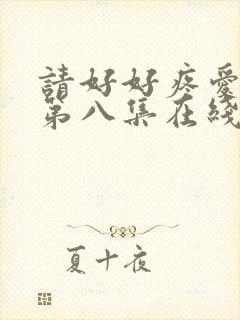 請好好疼愛
第八集在綫
夏十夜